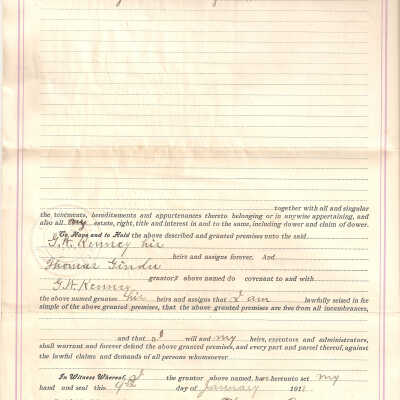 together with all and singular
the tenements, hereditaments and appurtenances thereto belonging or in anywise appertaining, and
also all my estate, right, title and interest in and to the same, including dower and claim of dower.
To Have and to Hold the above described and granted premises unto the said
G. W. Kenney his
heirs and assigns forever. And
Thomas
grantor above named do covenant to and with
G. W. Kenney
the above named grantee his heirs and assigns that I am lawfully seized in fee
simple of the above granted premises, that the above granted premises are free from all incumbrances,
and that I will and my heirs, executors and administrators,
shall warrant and forever defend the above granted premises, and every part and parcel thereof, against
the lawful claims and demands of all persons whomsoever
In Witness Whereof, I the grantor above named, have hereunto set my
hand and seal this 9th day of January 191